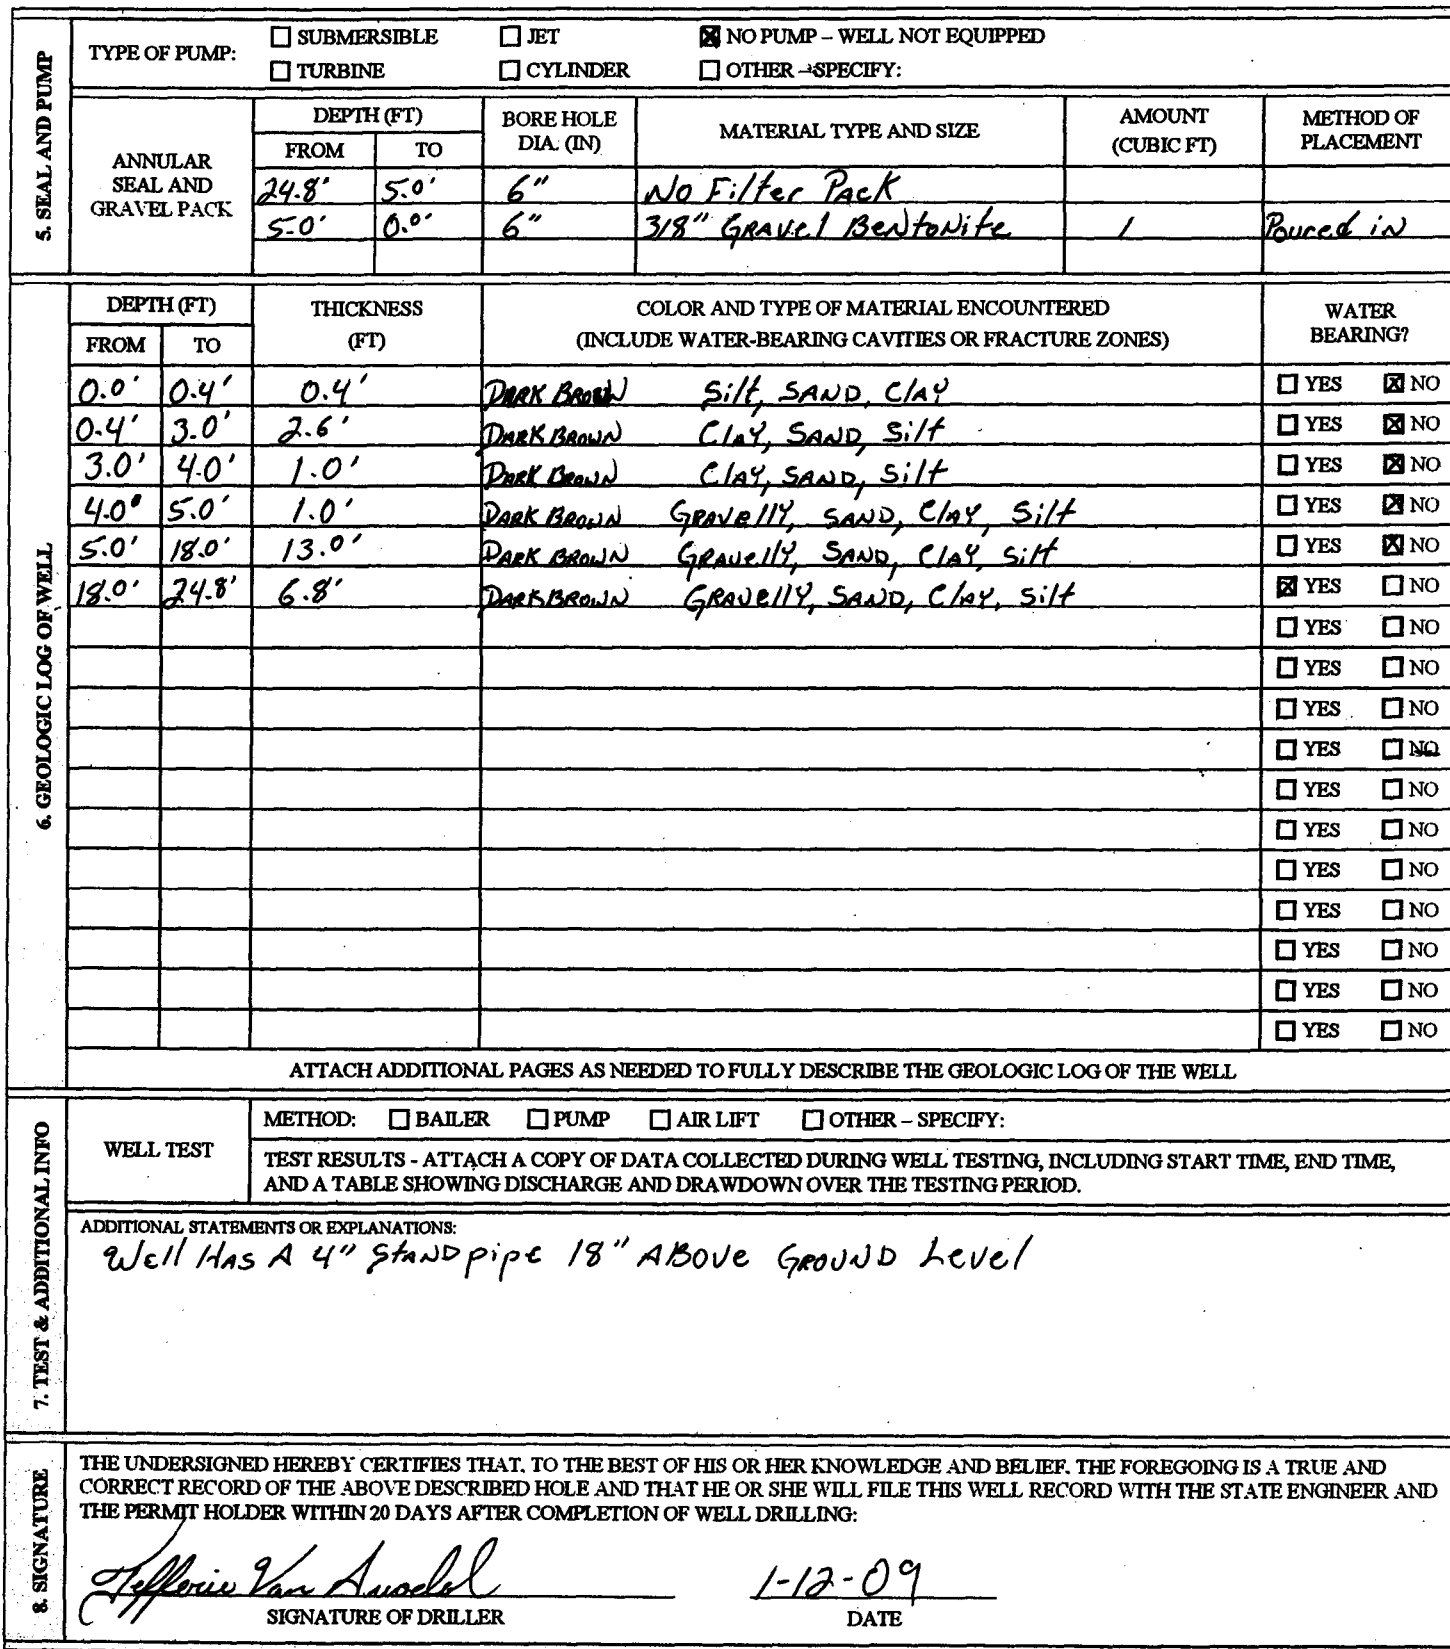 5. SEAL AND PUMP
TYPE OF PUMP: ☐ SUBMERSIBLE ☐ JET ☒ NO PUMP – WELL NOT EQUIPPED
☐ TURBINE ☐ CYLINDER ☐ OTHER – SPECIFY:
ANNULAR SEAL AND GRAVEL PACK
DEPTH (FT) BORE HOLE DIA. (IN) MATERIAL TYPE AND SIZE AMOUNT (CUBIC FT) METHOD OF PLACEMENT
FROM TO
24.8' 5.0' 6" No Filter Pack
5.0' 0.0' 6" 3/8" Gravel Bentonite 1 Poured in
6. GEOLOGIC LOG OF WELL
DEPTH (FT) THICKNESS (FT) COLOR AND TYPE OF MATERIAL ENCOUNTERED WATER BEARING?
FROM TO (INCLUDE WATER-BEARING CAVITIES OR FRACTURE ZONES)
0.0' 0.4' 0.4' Dark Brown Silt, Sand, Clay ☐ YES ☒ NO
0.4' 3.0' 2.6' Dark Brown Clay, Sand, Silt ☐ YES ☒ NO
3.0' 4.0' 1.0' Dark Brown Clay, Sand, Silt ☐ YES ☒ NO
4.0' 5.0' 1.0' Dark Brown Gravelly, Sand, Clay, Silt ☐ YES ☒ NO
5.0' 18.0' 13.0' Dark Brown Gravelly, Sand, Clay, Silt ☐ YES ☒ NO
18.0' 24.8' 6.8' Dark Brown Gravelly, Sand, Clay, Silt ☒ YES ☐ NO
☐ YES ☐ NO
☐ YES ☐ NO
☐ YES ☐ NO
☐ YES ☐ NO
☐ YES ☐ NO
☐ YES ☐ NO
☐ YES ☐ NO
☐ YES ☐ NO
☐ YES ☐ NO
☐ YES ☐ NO
☐ YES ☐ NO
ATTACH ADDITIONAL PAGES AS NEEDED TO FULLY DESCRIBE THE GEOLOGIC LOG OF THE WELL
7. TEST & ADDITIONAL INFO
WELL TEST
METHOD: ☐ BAILER ☐ PUMP ☐ AIR LIFT ☐ OTHER – SPECIFY:
TEST RESULTS - ATTACH A COPY OF DATA COLLECTED DURING WELL TESTING, INCLUDING START TIME, END TIME,
AND A TABLE SHOWING DISCHARGE AND DRAWDOWN OVER THE TESTING PERIOD.
ADDITIONAL STATEMENTS OR EXPLANATIONS:
Well Has A 4" Standpipe 18" Above Ground Level
8. SIGNATURE
THE UNDERSIGNED HEREBY CERTIFIES THAT, TO THE BEST OF HIS OR HER KNOWLEDGE AND BELIEF, THE FOREGOING IS A TRUE AND
CORRECT RECORD OF THE ABOVE DESCRIBED HOLE AND THAT HE OR SHE WILL FILE THIS WELL RECORD WITH THE STATE ENGINEER AND
THE PERMIT HOLDER WITHIN 20 DAYS AFTER COMPLETION OF WELL DRILLING:
Van 1-12-09
SIGNATURE OF DRILLER DATE